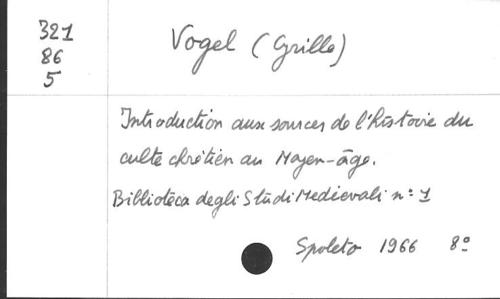 321
86
5
Vogel (Grille)
Introduction aux sources de l'histoire du
culte chrétien au Moyen-âge.
Biblioteca degli Studi Medievali n: 1
Spoleto 1966 8º